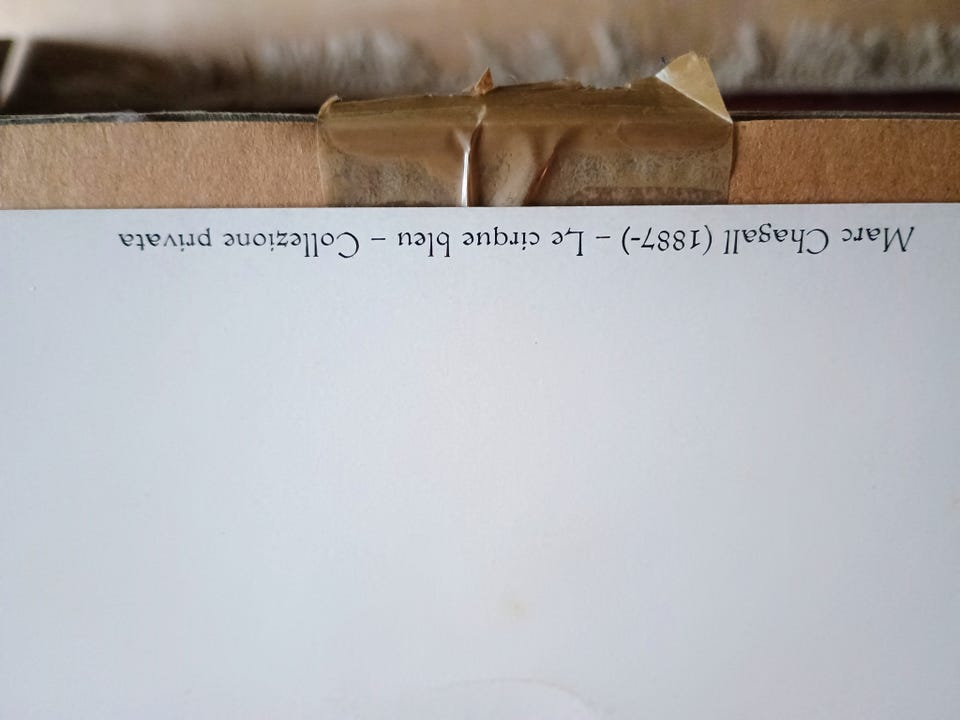 Marc Chagall (1887-) – Le cirque bleu – Collezione privata